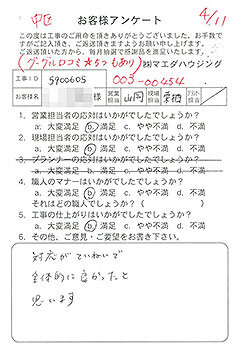 中区 お客様アンケート 4/11
この度は工事のご用命を頂きありがとうございました。お手数で
すがご記入頂き、ご返送頂きますようお願い申し上げます。
ご返送頂いた方から、毎月抽選で感謝品を進呈いたします。
(グーグル口コミ あり) ㈱マエダハウジング
工事ID 5900605 003-00454
お客様名 様 営業担当 山岡 現場担当 プラン担当 /
1. 営業担当者の応対はいかがでしたでしょうか？
a. 大変満足 b. 満足 c. やや不満 d. 不満
2. 現場担当者の応対はいかがでしたでしょうか？
a. 大変満足 b. 満足 c. やや不満 d. 不満
3. プランナーの応対はいかがでしたでしょうか？
a. 大変満足 b. 満足 c. やや不満 d. 不満
4. 職人のマナーはいかがでしたでしょうか？
a. 大変満足 b. 満足 c. やや不満 d. 不満
それはどの職人でしょうか？ ( )
5. 工事の仕上がりはいかがでしたでしょうか？
a. 大変満足 b. 満足 c. やや不満 d. 不満
6. その他、ご意見・ご要望をお書き下さい。
対応がていねいで
全体的に良かったと
思います